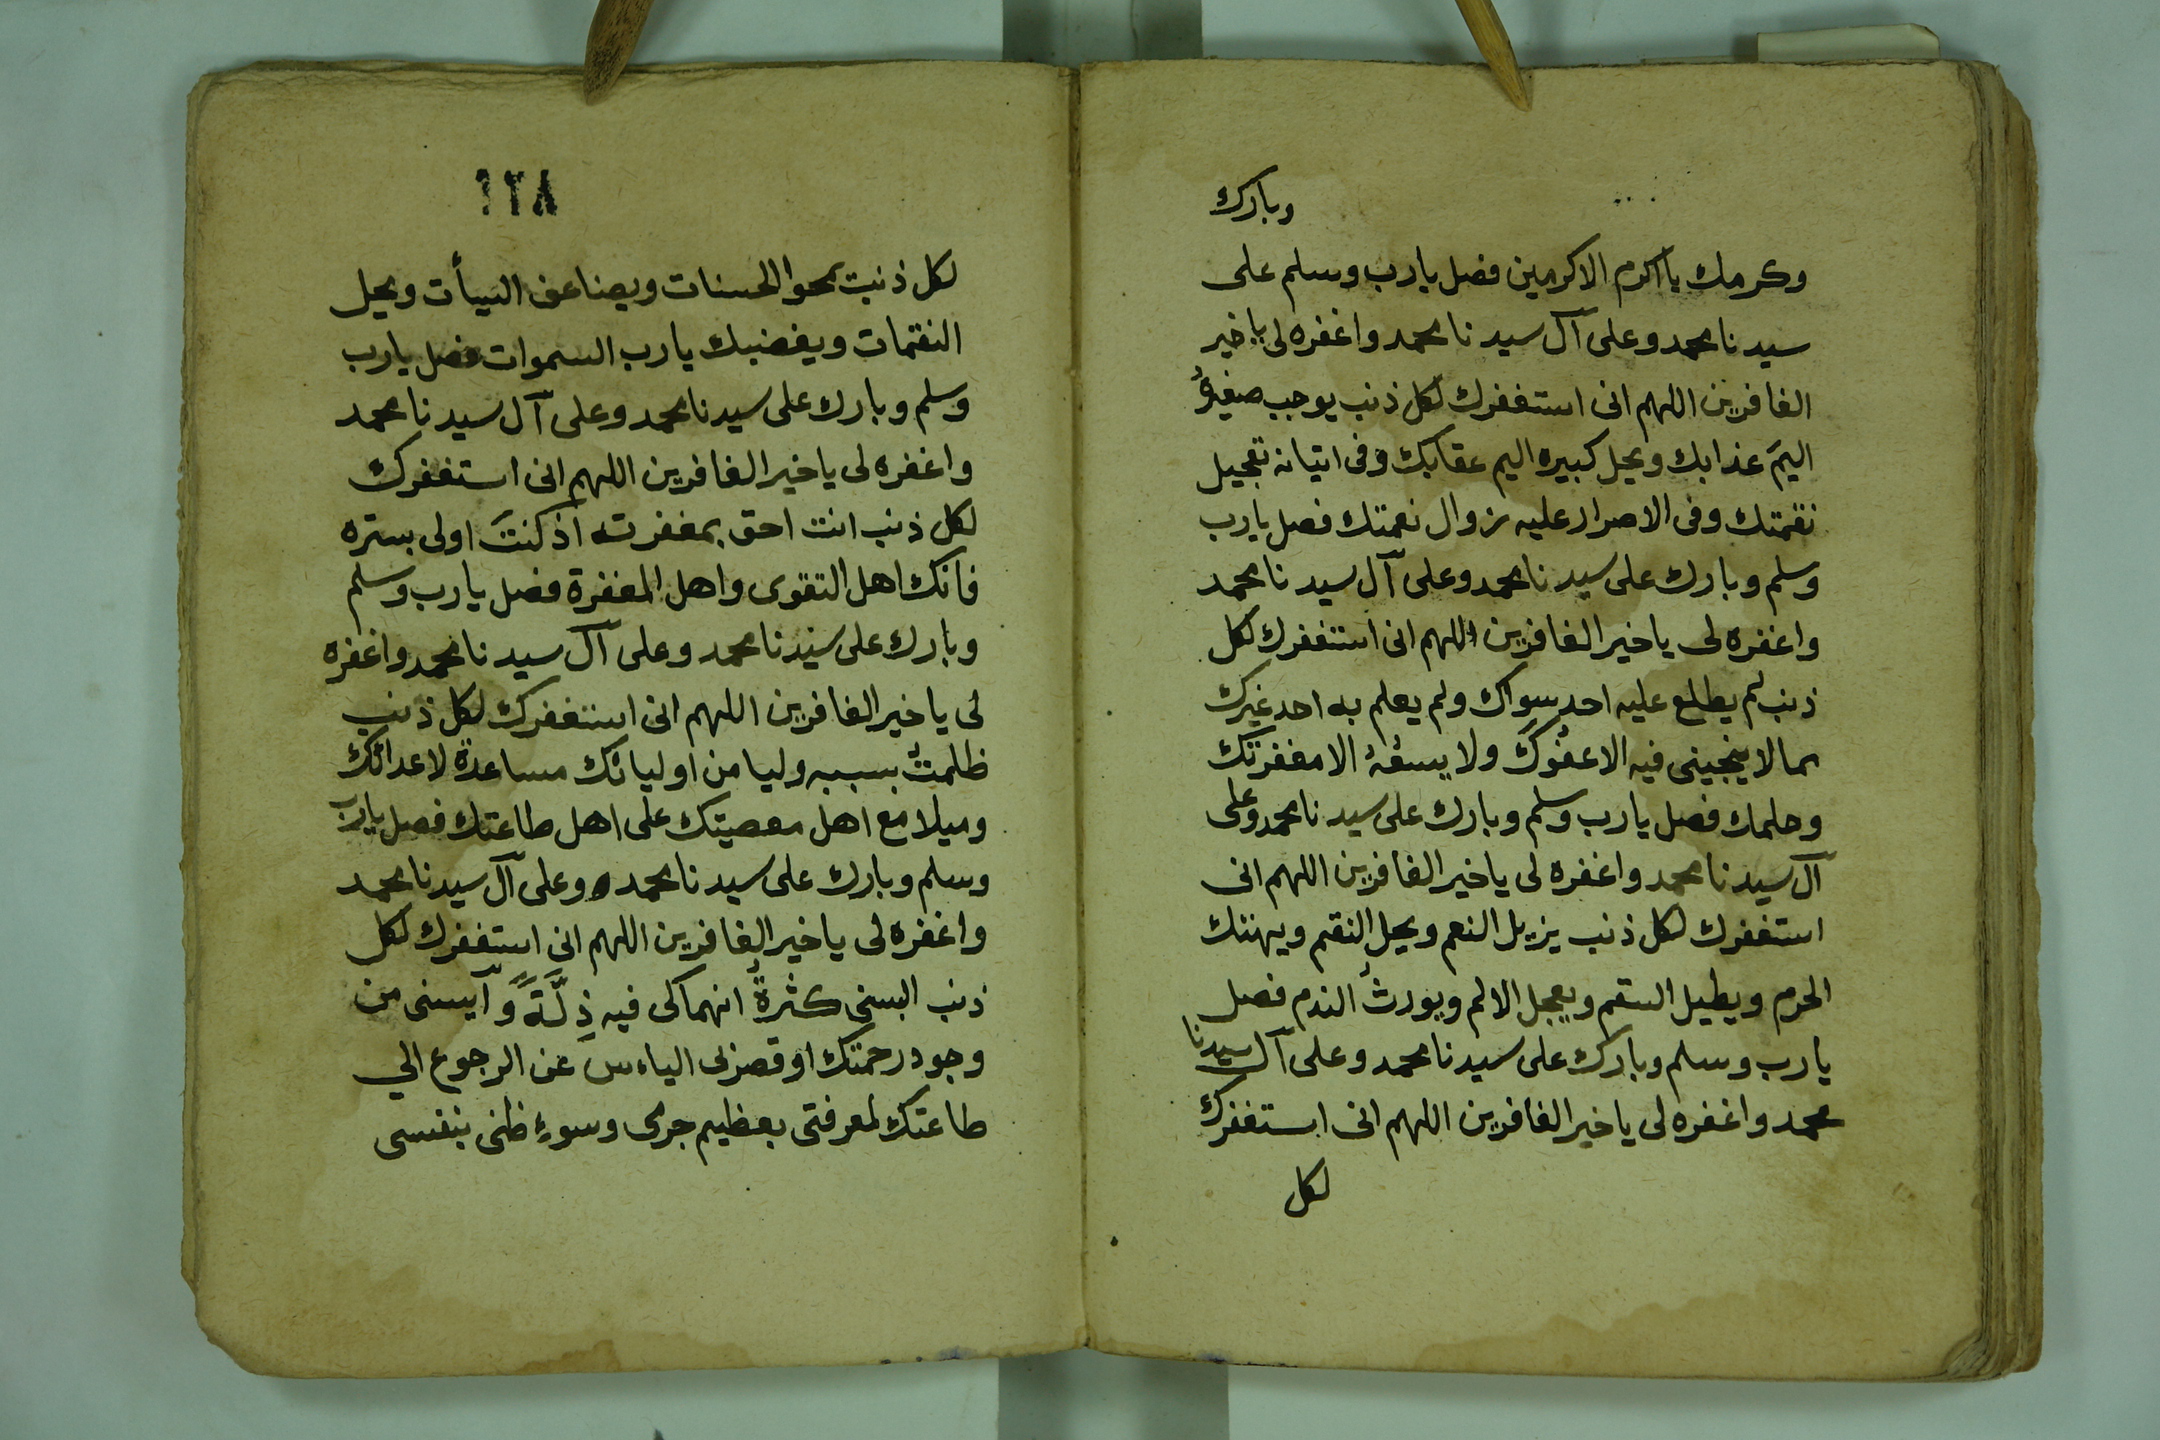 وبارك
وكرمك يا اكرم الاكرمين فصل يا رب وسلم على
سيدنا محمد وعلى آل سيدنا محمد واغفره لى يا خير
الغافرين اللهم انى استغفرك لكل ذنب يوجب صغيرهُ
اليمَ عذابك ويحل كبيره اليم عقابك وفى اتيانه تعجيل
نقمتك وفى الاصرار عليه زوال نعمتك فصل يا رب
وسلم وبارك على سيدنا محمد وعلى آل سيدنا محمد
واغفره لى يا خير الغافرين اللهم انى استغفرك لكل
ذنب لم يطلع عليه احد سواك ولم يعلم به احد غيرك
مما لا ينجينى فيه الا عفوُكَ ولا يسعُهُ الا مغفرتك
وحلمك فصل يا رب وسلم وبارك على سيدنا محمد وعلى
آل سيدنا محمد واغفره لى يا خير الغافرين اللهم انى
استغفرك لكل ذنب يزيل النعم ويحل النقم ويهتك
الحرم ويطيل السقم ويعجل الالم ويورثُ الندم فصل
يا رب وسلم وبارك على سيدنا محمد وعلى آل سيدنا
محمد واغفره لى يا خير الغافرين اللهم انى استغفرك
لكل
١٢٨
لكل ذنب يمحوا الحسنات ويضاعف السيأت ويحل
النقمات ويغضبك يا رب السموات فصل يا رب
وسلم وبارك على سيدنا محمد وعلى آل سيدنا محمد
واغفره لى يا خير الغافرين اللهم انى استغفرك
لكل ذنب انت احق بمغفرته اذ كنتَ اولى بستره
فانك اهل التقوى واهل المغفرة فصل يا رب وسلم
وبارك على سيدنا محمد وعلى آل سيدنا محمد واغفره
لى يا خير الغافرين اللهم انى استغفرك لكل ذنب
ظلمتُ بسببه وليا من اوليائك مساعدة لاعدائك
وميلا مع اهل معصيتك على اهل طاعتك فصل يا رب
وسلم وبارك على سيدنا محمد وعلى آل سيدنا محمد
واغفره لى يا خير الغافرين اللهم انى استغفرك لكل
ذنب البسنى كثرةُ انهماكى فيه ذِلَّةً وَآيسنى من
وجود رحمتك او قصرنى الياءس عن الرجوع الي
طاعتك لمعرفتى بعظيم جرمى وسوءِ ظنى بنفسى